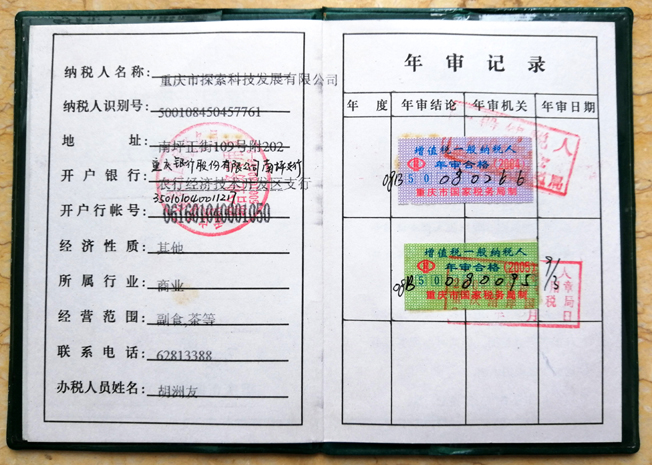 纳税人名称：重庆市探索科技发展有限公司
纳税人识别号：500108450457761
地　　址：南坪正街109号附202
重庆银行股份有限公司南坪支行
开户银行：农行经济技术开发区支行
35010104000121
开户行帐号：
经济性质：其他
所属行业：商业
经营范围：副食,茶等
联系电话：62813388
办税人员姓名：胡洲友
年审记录
年度 年审结论 年审机关 年审日期
增值税一般纳税人
年审合格(2004)
08B 50 080266
重庆市国家税务局制
增值税一般纳税人
年审合格(2005)
08B 50 0080095
重庆市国家税务局制